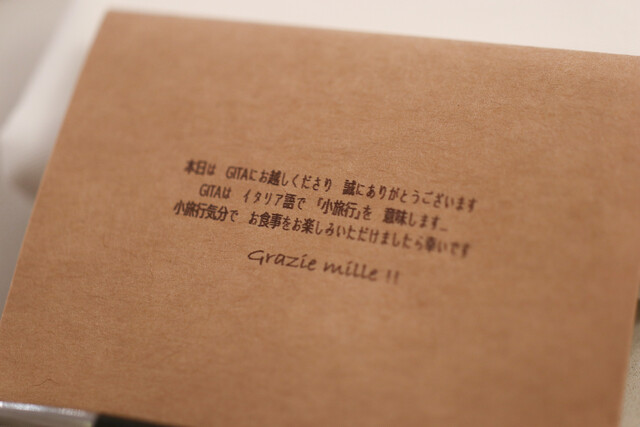 本日は GITAにお越しくださり 誠にありがとうございます
GITAは イタリア語で 「小旅行」を 意味します...
小旅行気分で お食事をお楽しみいただけましたら幸いです
Grazie mille !!